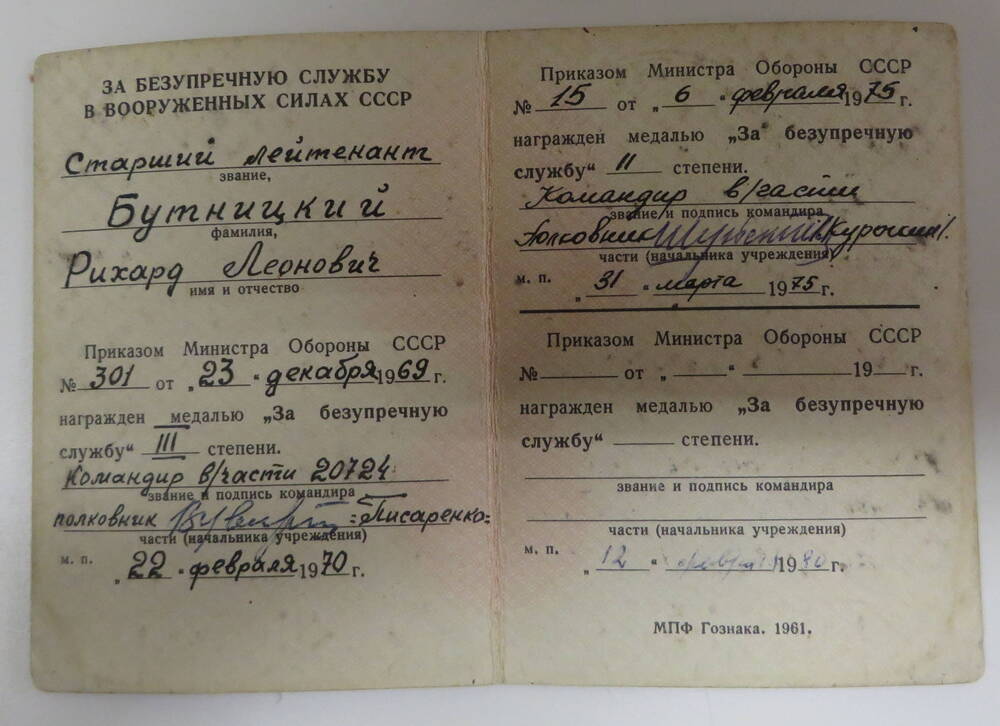 ЗА БЕЗУПРЕЧНУЮ СЛУЖБУ
В ВООРУЖЕННЫХ СИЛАХ СССР
Старший лейтенант
звание,
Бутницкий
фамилия,
Рихард Леонович
имя и отчество
Приказом Министра Обороны СССР
№ 301 от „23“ декабря 1969 г.
награжден медалью „За безупречную
службу“ III степени.
Командир в/части 20724
звание и подпись командира
полковник =Писаренко=
части (начальника учреждения)
м. п.
„22“ февраля 1970 г.
Приказом Министра Обороны СССР
№ 15 от „6“ февраля 1975 г.
награжден медалью „За безупречную
службу“ II степени.
Командир в/части
звание и подпись командира
Полковник
части (начальника учреждения)
м. п.
„31“ марта 1975 г.
Приказом Министра Обороны СССР
№ от „ “ 19 г.
награжден медалью „За безупречную
службу“ степени.
звание и подпись командира
части (начальника учреждения)
м. п.
„12“ февраля 1980 г.
МПФ Гознака. 1961.